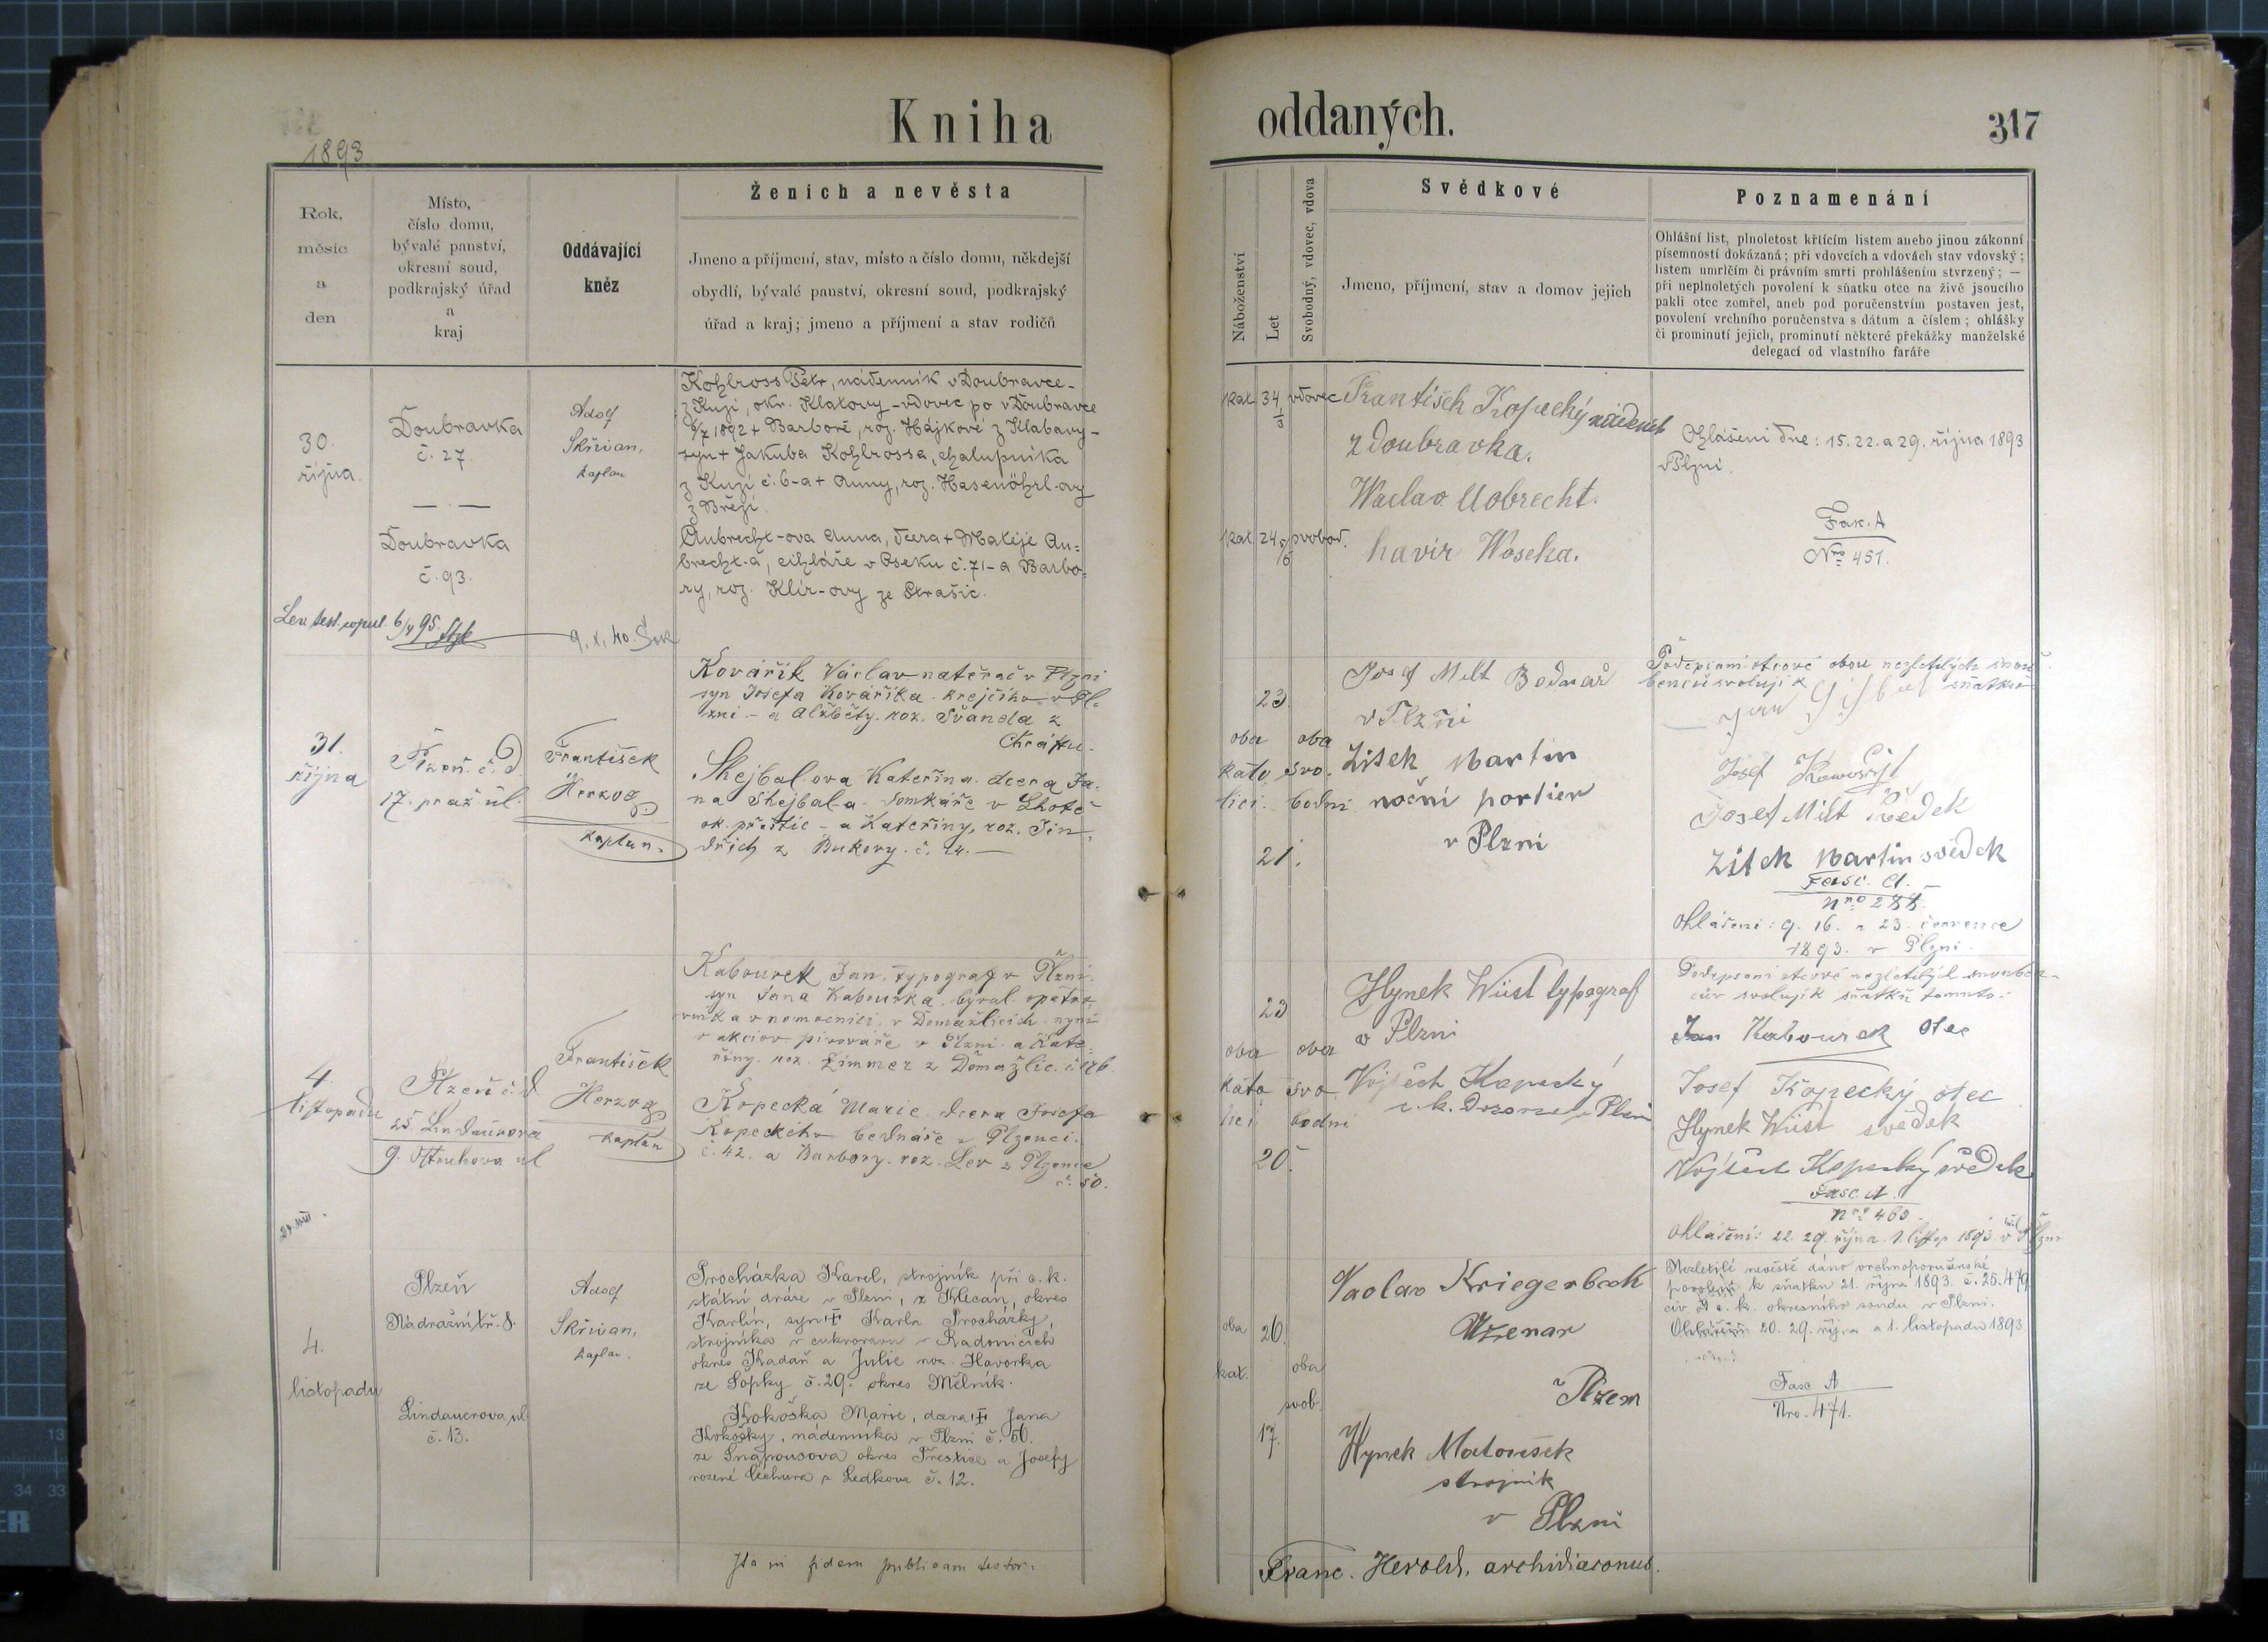 Kniha
oddaných.
317
1893
Rok,
měsíc
a
den
Místo,
číslo domu,
bývalé panství,
okresní soud,
podkrajský úřad
a
kraj
Oddávající
kněz
Ženich a nevěsta
Jmeno a příjmení, stav, místo a číslo domu, někdejší
obydlí, bývalé panství, okresní soud, podkrajský
úřad a kraj; jmeno a příjmení a stav rodičů
Náboženství
Let
Svobodný, vdovec, vdova
Svědkové
Jmeno, příjmení, stav a domov jejich
Poznamenání
Ohlášní list, plnoletost křticím listem anebo jinou zákonní
písemností dokázaná; při vdovcích a vdovách stav vdovský;
listem umrlčím či právním smrti prohlášením stvrzený; —
při neplnoletých povolení k sňatku otce na živě jsoucího
pakli otec zomřel, aneb pod poručenstvím postaven jest,
povolení vrchního poručenstva s dátum a číslem; ohlášky
či prominutí jejich, prominutí některé překážky manželské
delegací od vlastního faráře
30.
října
Doubravka
č. 27.
Doubravka
č. 93.
Adolf
Skřivan,
kaplan
Kohlross Petr, nádenník v Doubravce-
z Kuzí, okr. Klatovy - vdovec po v Doubravce
1892 + Barboře, roz. Hájkové z Klabavy-
syn + Jakuba Kohlrossa, chalupníka
z Kuzí č. 6 - a + Anny, roz. Hasenöhrl-ovy
z Březí.
Aubrecht-ova Anna, dcera + Matěje Au=
brecht-a, cihláře v Oseku č. 71 - a Barbo=
ry, roz. Klír-ovy ze Strašic.
kat. 34 vdovec
kat. 24 svobod.
František Kopecký nádeník
z Doubravka.
Waclav Uobrecht.
havíř Woseka.
Ohlášeni dne: 15. 22. a 29. října 1893
v Plzni.
Fak. A
Nro 451.
Lev test. copul. 6/4 95.
9. X. 40.
31.
října
Plzeň. č. d.
17. praž. ul.
František
Herzog
kaplan.
Kovářík Václav natěrač v Plzni
syn Josefa Kováříka. krejčího v Pl-
zni - a Alžběty. roz. Švanda z
Chrástu.
Shejbal ova Kateřina. dcera Ja-
na Shejbal-a domkáře v Lhotě
ok. přeštic - a Kateřiny, roz. Jin-
dřich z Bukovy. č. 24. —
23.
oba oba
kato svo.
lici. bodni
21.
Josef Milt Bednař
v Plzňi
Zítek Martin
noční portier
v Plzni
Podepsaní otcové obou nezletilých snou-
benců svolují k sňatku
Josef Milt svědek
Zítek Martin svědek
Fasc. A.
Nro 288.
Ohlášeni: 9. 16. a 23. července
1893. v Plzni.
4.
listopadu
Plzeň č. d
25. Lindauerova
9. Ostruhova ul
František
Herzog
kaplan
Kabourek Jan. typograf v Plzni.
syn Jana Kabourka. býval. opatro-
vníka v nemocnici v Domažlicích. nyní
v akciov. pivováře v Plzni - a Kate-
řiny. roz. Zimmer z Domažlic.
Kopecká Marie dcera Josefa
Kopeckého bednáře z Plzence.
č. 42. a Barbory. roz. Lev z Plzence
č. 50.
23
oba oba
kato svo
lici bodni
20.
Hynek Wüst typograf
v Plzni
Vojtěch Kopecký
v Plzni
Podepsaní otcové nezletilých snouben-
ců svolují k sňatku tomuto.
Jan Kabourek otec
Josef Kopecký otec
Hynek Wüst svědek
Vojtěch Kopecký svědek
Fasc. A.
Nro 469.
Ohlášení: 22. 29. října. 1. listop 1893 v Plzni
4.
listopadu
Plzeň
Nádražní tř. 8.
Lindauerova ul
č. 13.
Adolf
Skřivan,
kaplan.
Procházka Karel, strojník při c. k.
státní dráze v Plzni, z Klecan, okres
Karlín, syn + Karla Procházky,
strojníka v cukrovaru v Radonicích
okres Kadaň a Julie roz. Havorka
ze Šopky č. 29. okres Mělník.
Kokoška Marie, dcera + Jana
Kokošky, nádenníka v Plzni č. 50.
ze Snopousova okres Přeštice a Josefy
rozené Čechura z Ledkova č. 12.
oba 26.
kat. oba
svob.
17.
Vaclav Kriegerbeck
Uzenar
Plzem
Hynek Matoušek
strojník
v Plzni
Nezletilé nevěstě dáno vrchnoporučenské
povolení k sňatku 21. října 1893. č. 25.479
civ od c. k. okresního soudu v Plzni.
Ohlášení 20. 29. října a 1. listopadu 1893
Fasc A
Nro. 471.
Ita in fidem publicam testor.
Franc. Herold, archidiaconus.